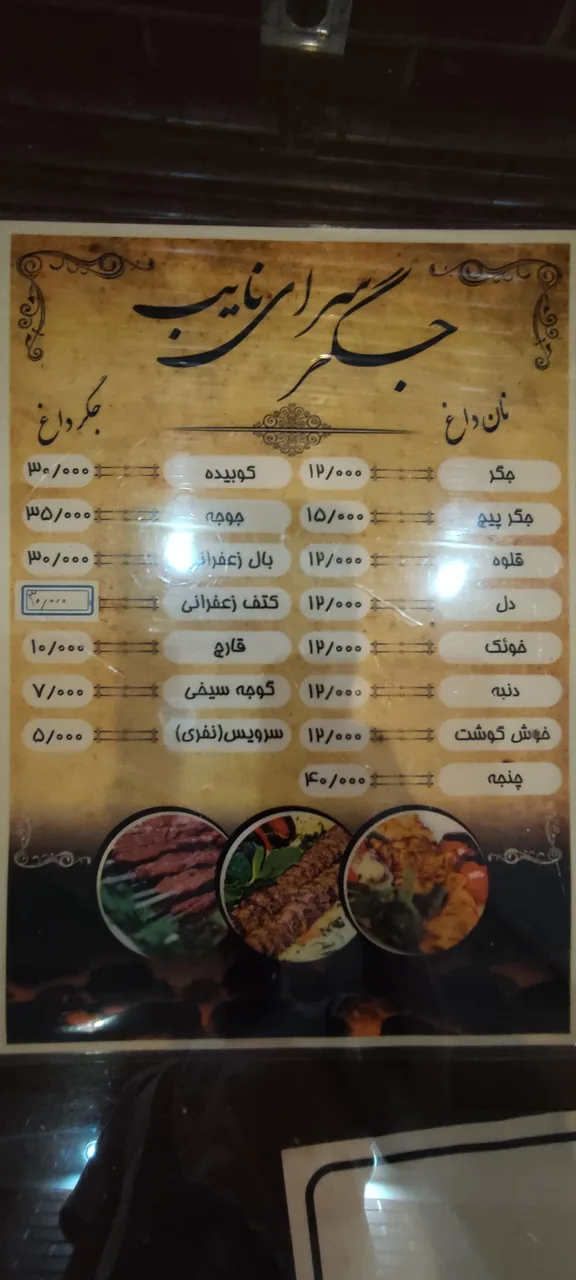 جگرسرای نایب
نان داغ
جگر داغ
جگر ۱۲/۰۰۰
کوبیده ۳۰/۰۰۰
جگر پیچ ۱۵/۰۰۰
جوجه ۳۵/۰۰۰
قلوه ۱۲/۰۰۰
بال زعفرانی ۳۰/۰۰۰
دل ۱۲/۰۰۰
کتف زعفرانی ۳۰/۰۰۰
خوئک ۱۲/۰۰۰
قارچ ۱۰/۰۰۰
دنبه ۱۲/۰۰۰
گوجه سیخی ۷/۰۰۰
خوش گوشت ۱۲/۰۰۰
سرویس(نفری) ۵/۰۰۰
چنجه ۴۰/۰۰۰